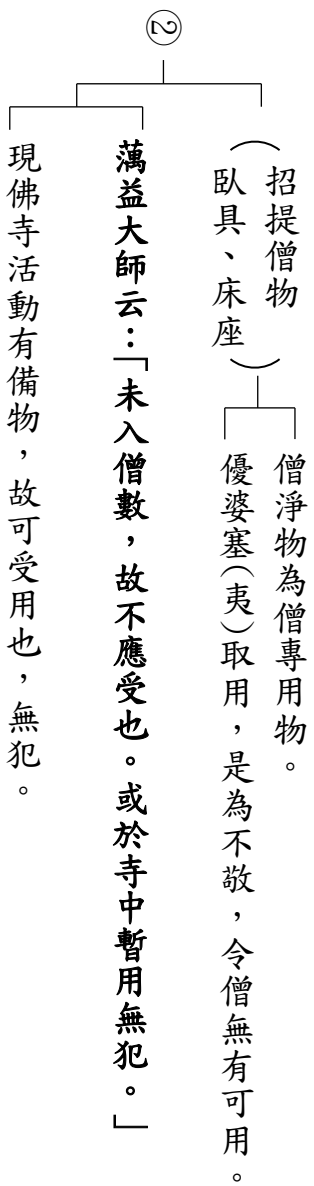 ②
（招提僧物
臥具、床座）
僧淨物為僧專用物。
優婆塞（夷）取用，是為不敬，令僧無有可用。
蕅益大師云：「未入僧數，故不應受也。或於寺中暫用無犯。」
現佛寺活動有備物，故可受用也，無犯。